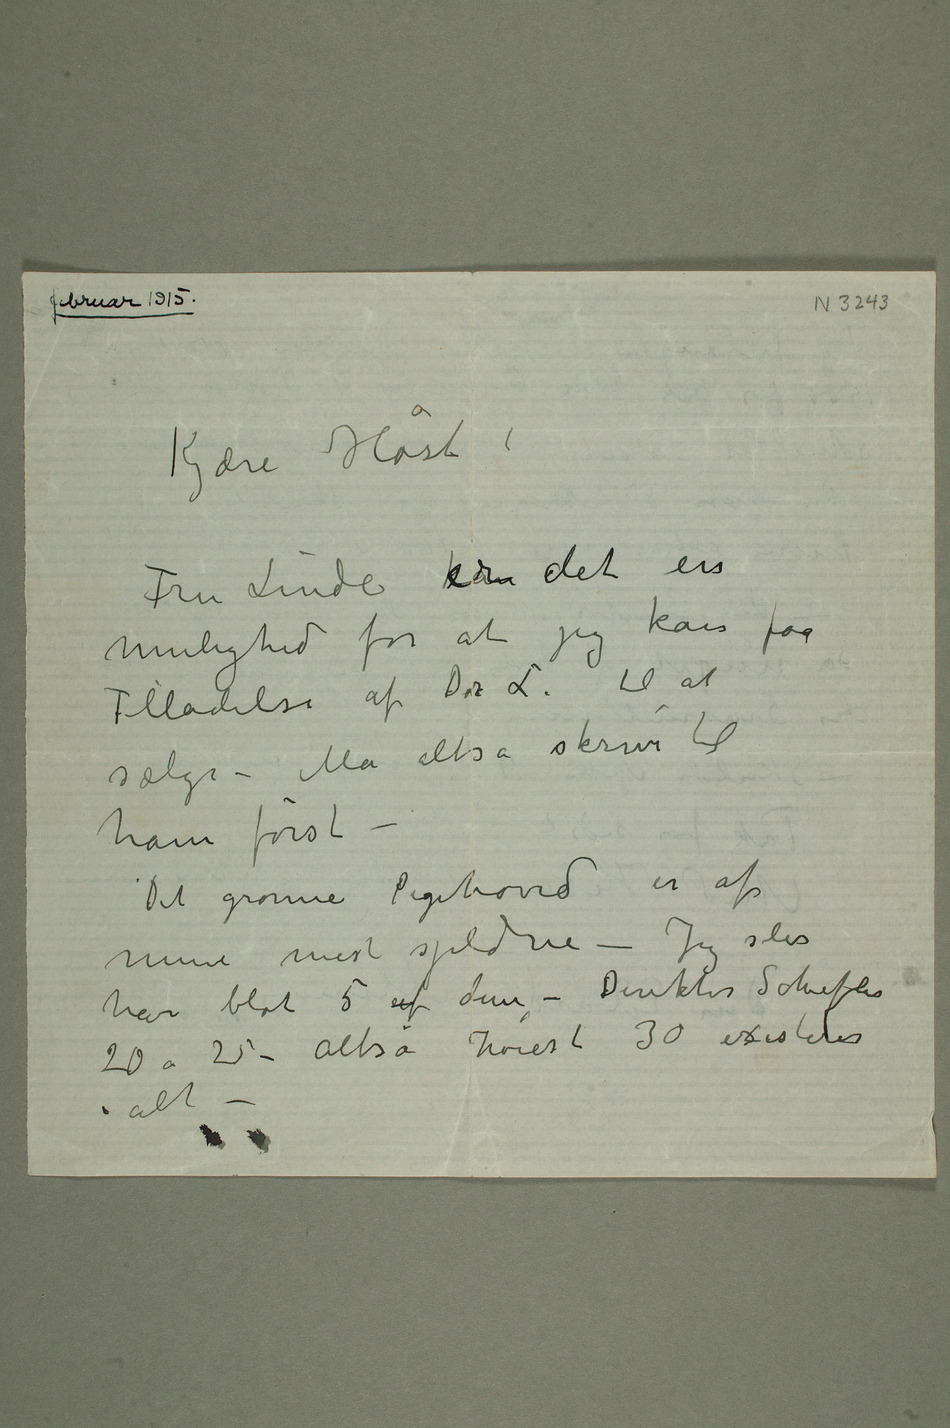 februar 1915.
N 3243
Kjære Høst!
Fru Linde kan det en
mulighed for at jeg kan faa
Tilladelse af Dr L. til at
sælge – Må altså skrive til
ham først –
Det grønne Pigehoved er af
mine mest sjeldne – Jeg selv
har blot 5 af dem – Direktør Schiefler
20 a 25 – altså høiest 30 existerer
ialt –